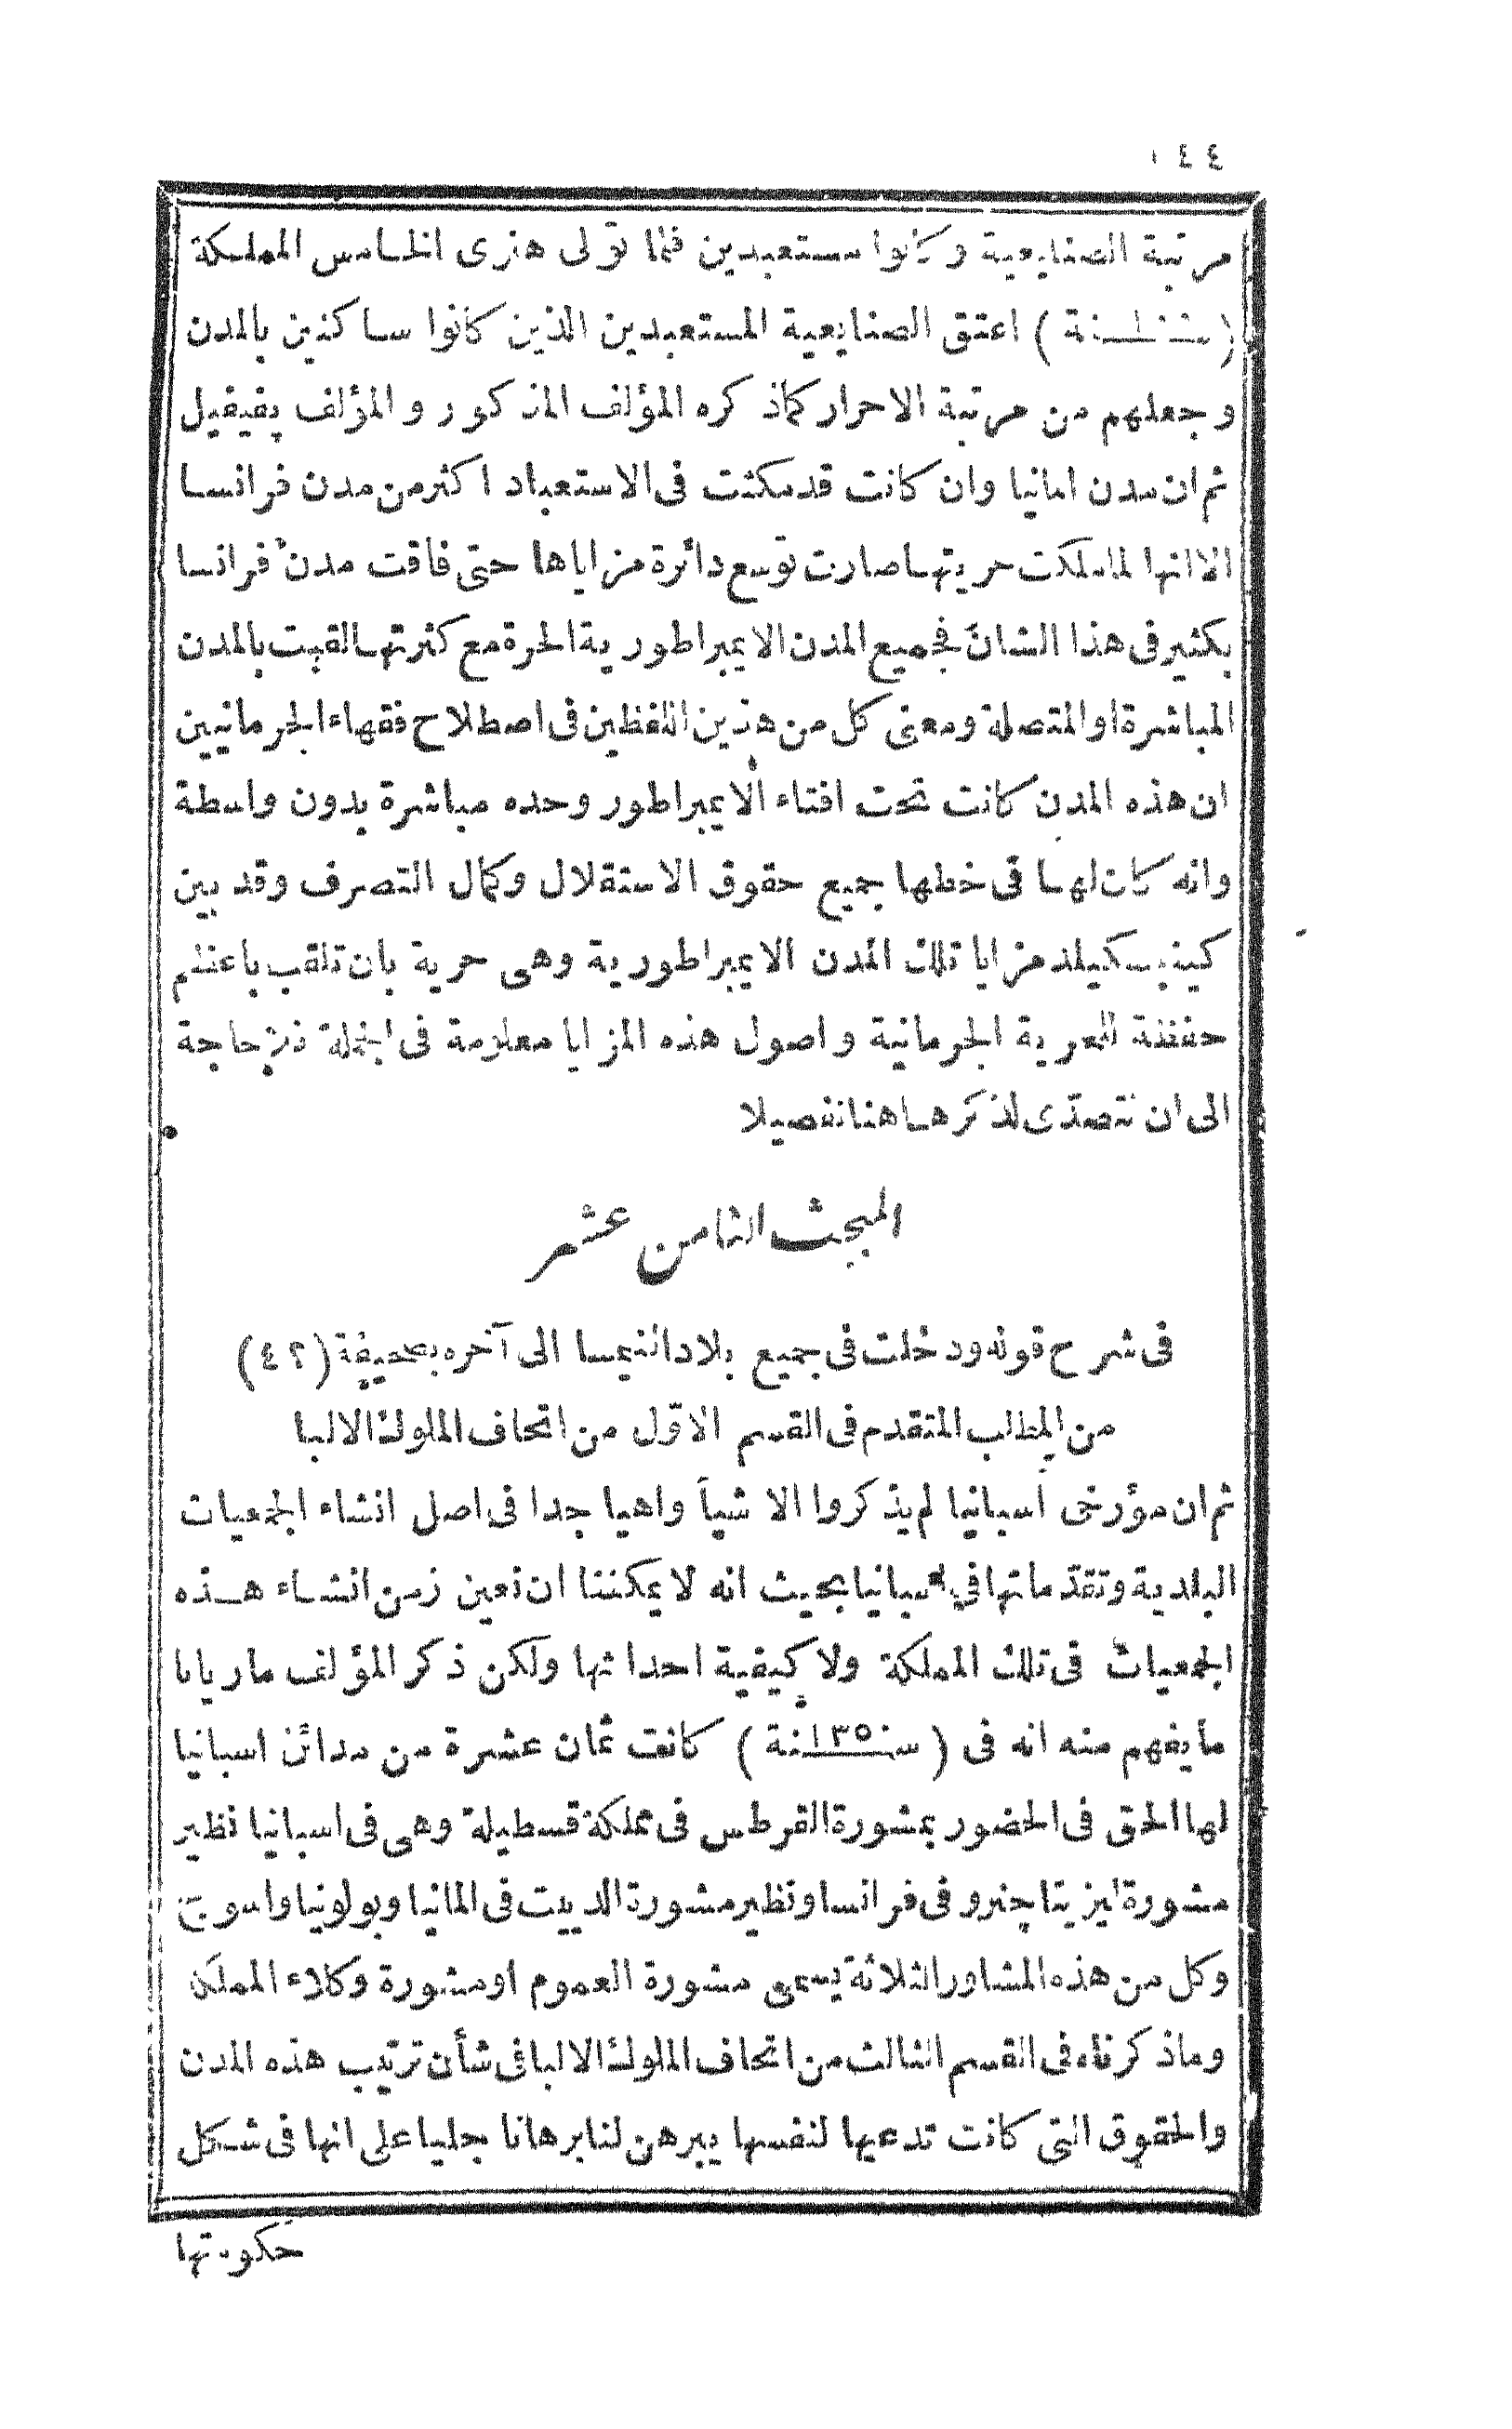 ١٤٤
مرتبة الصنايعية وكانوا مستعبدين فلما تولى هنرى الخامس المملكة
(سنة) اعتق الصنايعية المستعبدين الذين كانوا ساكنين بالمدن
وجعلهم من مرتبة الاحرار كماذكره المؤلف المذكور والمؤلف پفيفيل
ثم ان مدن المانيا وان كانت قد مكثت فى الاستعباد اكثر من مدن فرانسا
الا انها لما ملكت حريتها صارت توسع دائرة مزاياها حتى فاقت مدن فرانسا
بكثير فى هذا الشان فجميع المدن الايمبراطورية الحرة مع كثرتها لقبت بالمدن
المباشرة او المتصلة ومعنى كل من هذين اللفظين فى اصطلاح فقهاء الجرمانيين
ان هذه المدن كانت تحت افتاء الايمبراطور وحده مباشرة بدون واسطة
وانه كان لها فى خطها جميع حقوق الاستقلال وكمال التصرف وقد بين
مزايا تلك المدن الايمبراطورية وهى حرية بان تلقب باعظم
حفظة للحرية الجرمانية واصول هذه المزايا معلومة فى الجملة فلا حاجة
الى ان نتصدّى لذكرها هنا تفصيلا
المبحث الثامن عشر
فى شرح قوله ودخلت فى جميع بلاد النيمسا الى آخره بصحيفة (٤٢)
من المطلب المتقدم فى القسم الاوّل من اتحاف الملوك الالبا
ثم ان مؤرخى اسبانيا لم يذكروا الا شيأ واهيا جدا فى اصل انشاء الجمعيات
البلدية وتقدّماتها فى اسبانيا بحيث انه لا يمكننا ان نعين زمن انشاء هذه
الجمعيات فى تلك المملكة ولا كيفية احداثها ولكن ذكر المؤلف ماريانا
ما يفهم منه انه فى (سنة ١٣٥٠) كانت ثمان عشرة من مدائن اسبانيا
لها الحق فى الحضور بمشورة القرطس فى مملكة قسطيلة وهى فى اسبانيا نظير
مشورة ليزيتا جنرو فى فرانسا ونظير مشورة الدييت فى المانيا وبولونيا واسوج
وكل من هذه المشاور الثلاثة يسمى مشورة العموم او مشورة وكلاء المملكة
وماذكرناه فى القسم الثالث من اتحاف الملوك الالبا فى شأن ترتيب هذه المدن
والحقوق التى كانت تدعيها لنفسها يبرهن لنا برهانا جليا على انها فى شكل
حكومتها